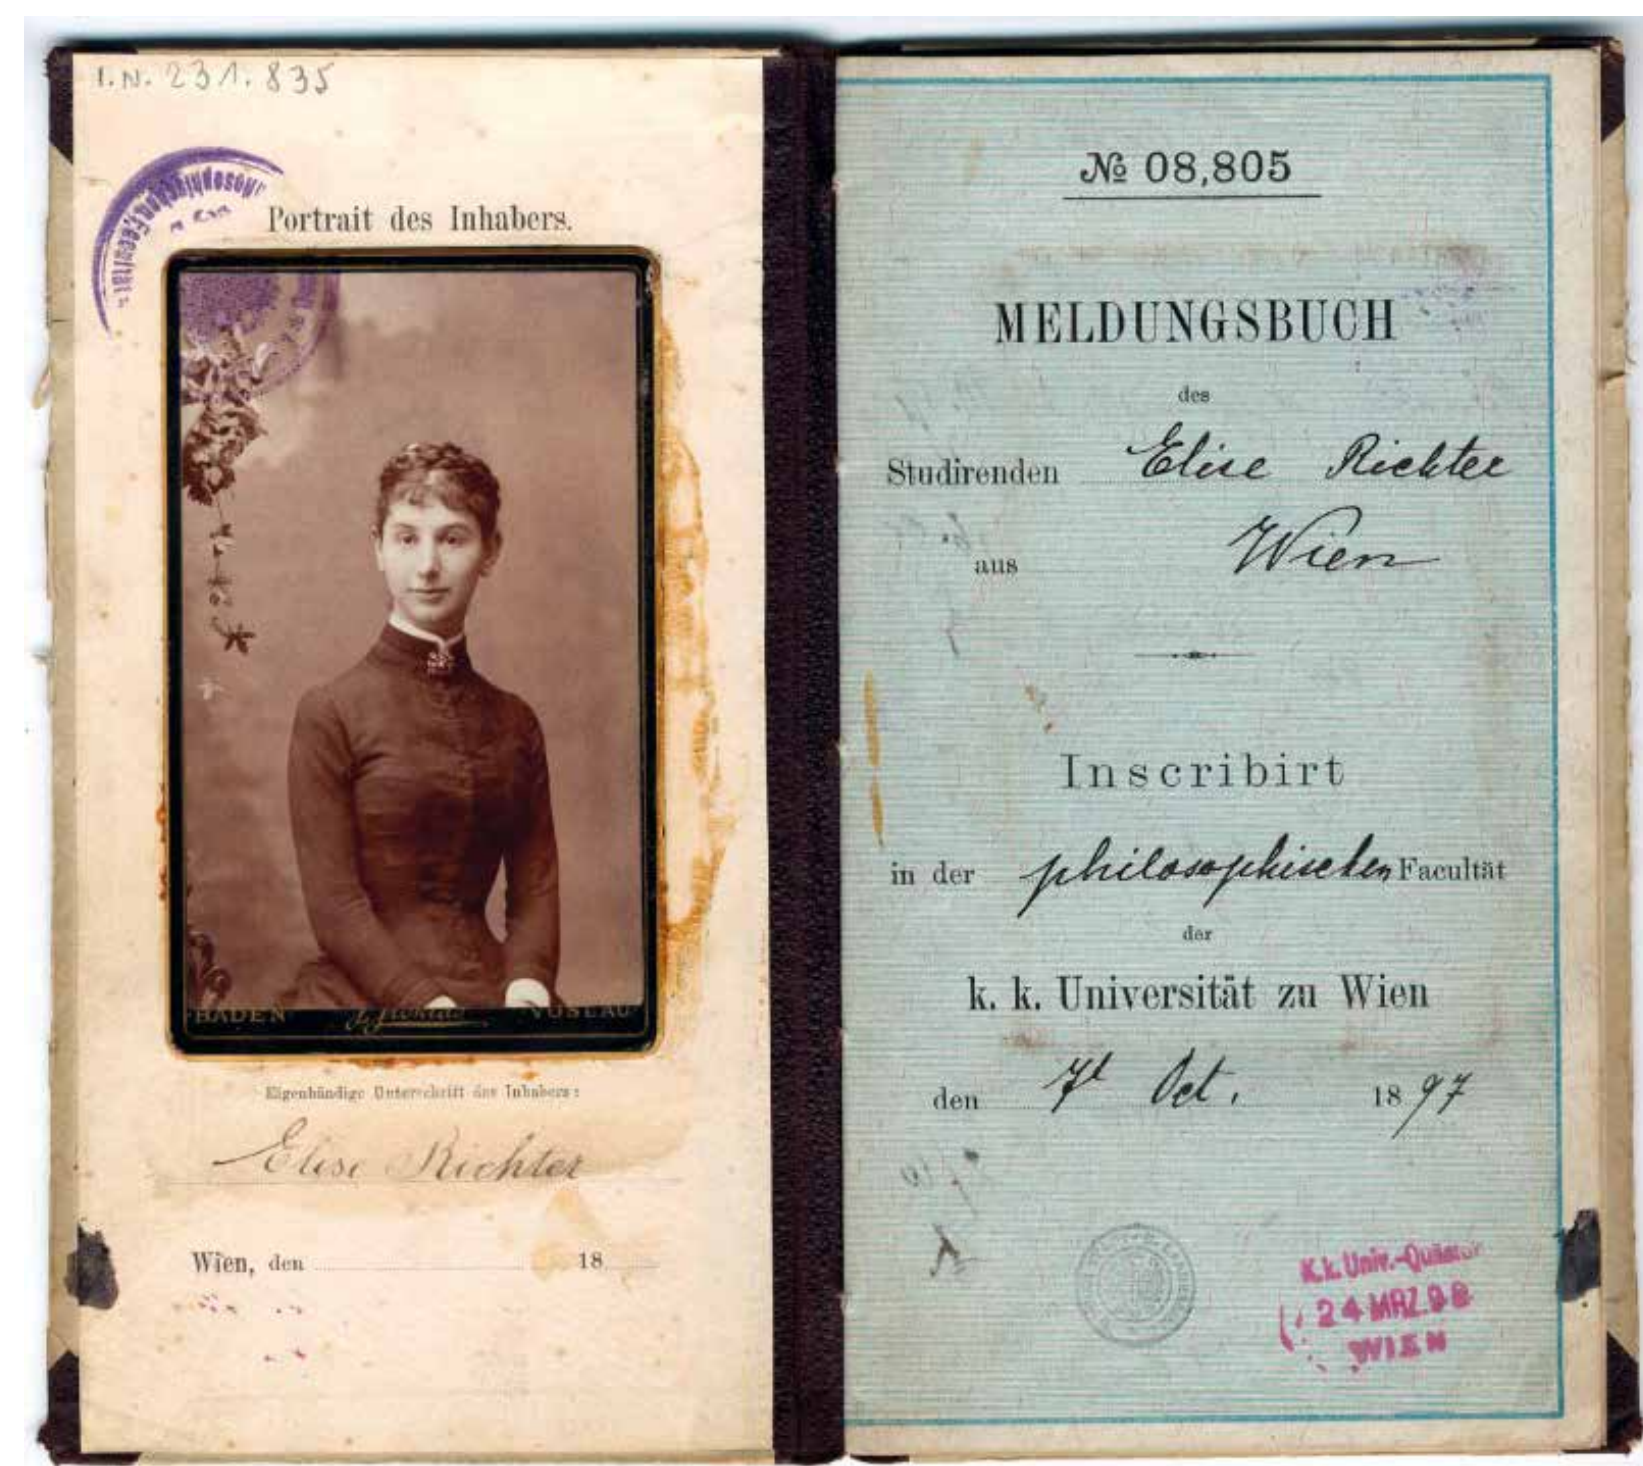 I. N. 231. 835
Portrait des Inhabers.
BADEN VÖSLAU
Eigenhändige Unterschrift des Inhabers:
Elise Richter
Wien, den 18
№ 08,805
MELDUNGSBUCH
des
Studirenden Elise Richter
aus Wien
Inscribirt
in der philosophischen Facultät
der
k. k. Universität zu Wien
den 7t Oct. 1897
K.k. Univ.-Quästur
24 MRZ. 98
WIEN